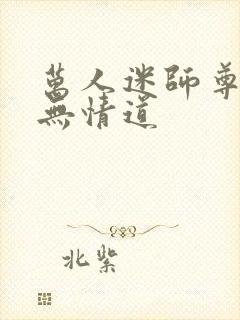 萬人迷師尊
無情道
北紫